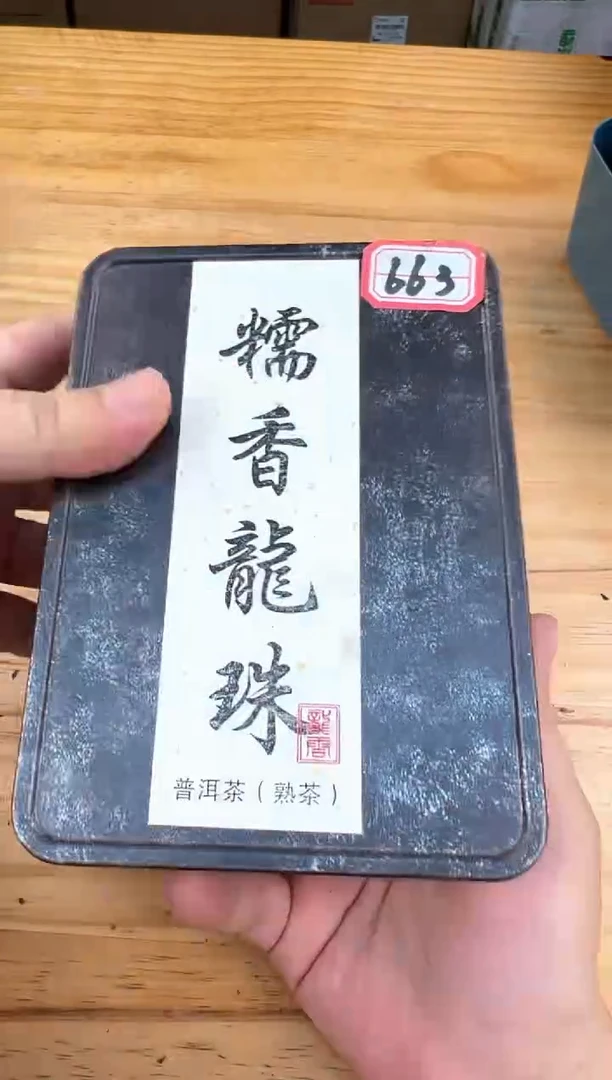 663
糯香龍珠
普洱茶（熟茶）